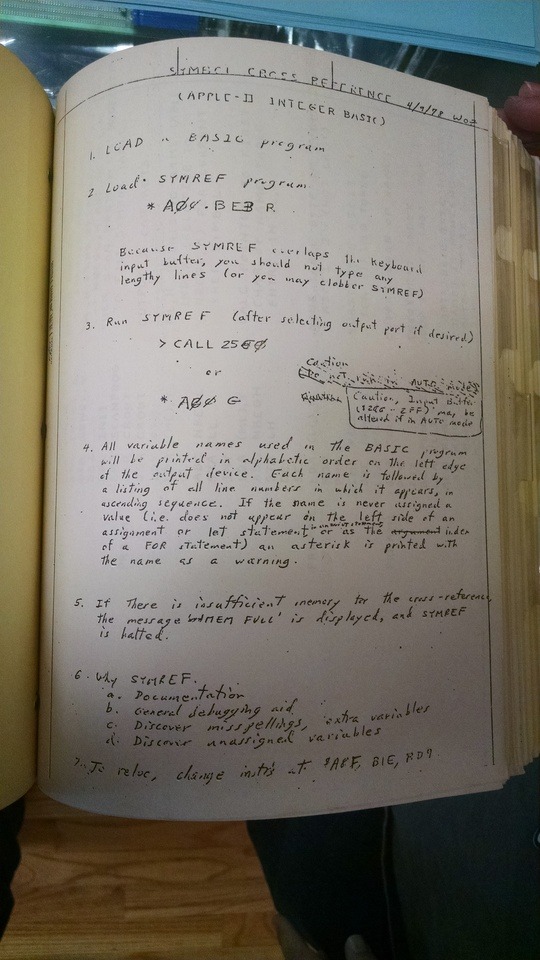 SYMBOL CROSS REFERENCE 4/9/78 WOZ
(APPLE-II INTEGER BASIC)
1. LOAD a BASIC program
2. Load SYMREF program
* AØØ.BE3 R
Because SYMREF overlaps the keyboard
input buffer, you should not type any
lengthy lines (or you may clobber SYMREF)
3. Run SYMREF (after selecting output port if desired)
> CALL 2560
or
* AØØ G
Caution
Do not run in AUTO mode
Caution, Input Buffer
($200 - 2FF) may be
altered if in AUTO mode
4. All variable names used in the BASIC program
will be printed in alphabetic order on the left edge
of the output device. Each name is followed by
a listing of all line numbers in which it appears, in
ascending sequence. If the name is never assigned a
value (i.e. does not appear on the left side of an
assignment or let statement, or as the argument index
of a FOR statement) an asterisk is printed with
the name as a warning.
5. If There is insufficient memory for the cross-reference
the message 'MEM FULL' is displayed, and SYMREF
is halted.
6. Why SYMREF.
a. Documentation
b. General debugging aid
c. Discover misspellings, extra variables
d. Discover unassigned variables
7. To reloc, change instrs at